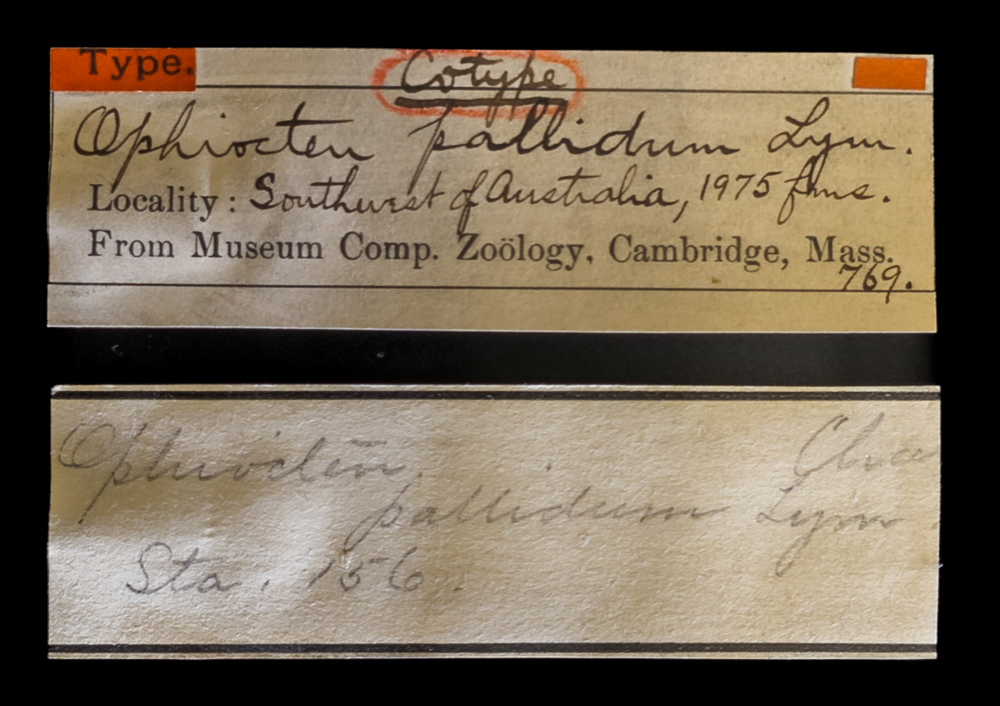 Type.
Cotype
Ophiocten pallidum Lym.
Locality: Southwest of Australia, 1975 fms.
From Museum Comp. Zoölogy, Cambridge, Mass.
769.
Ophiocten.
pallidum Lym
Sta. 156.